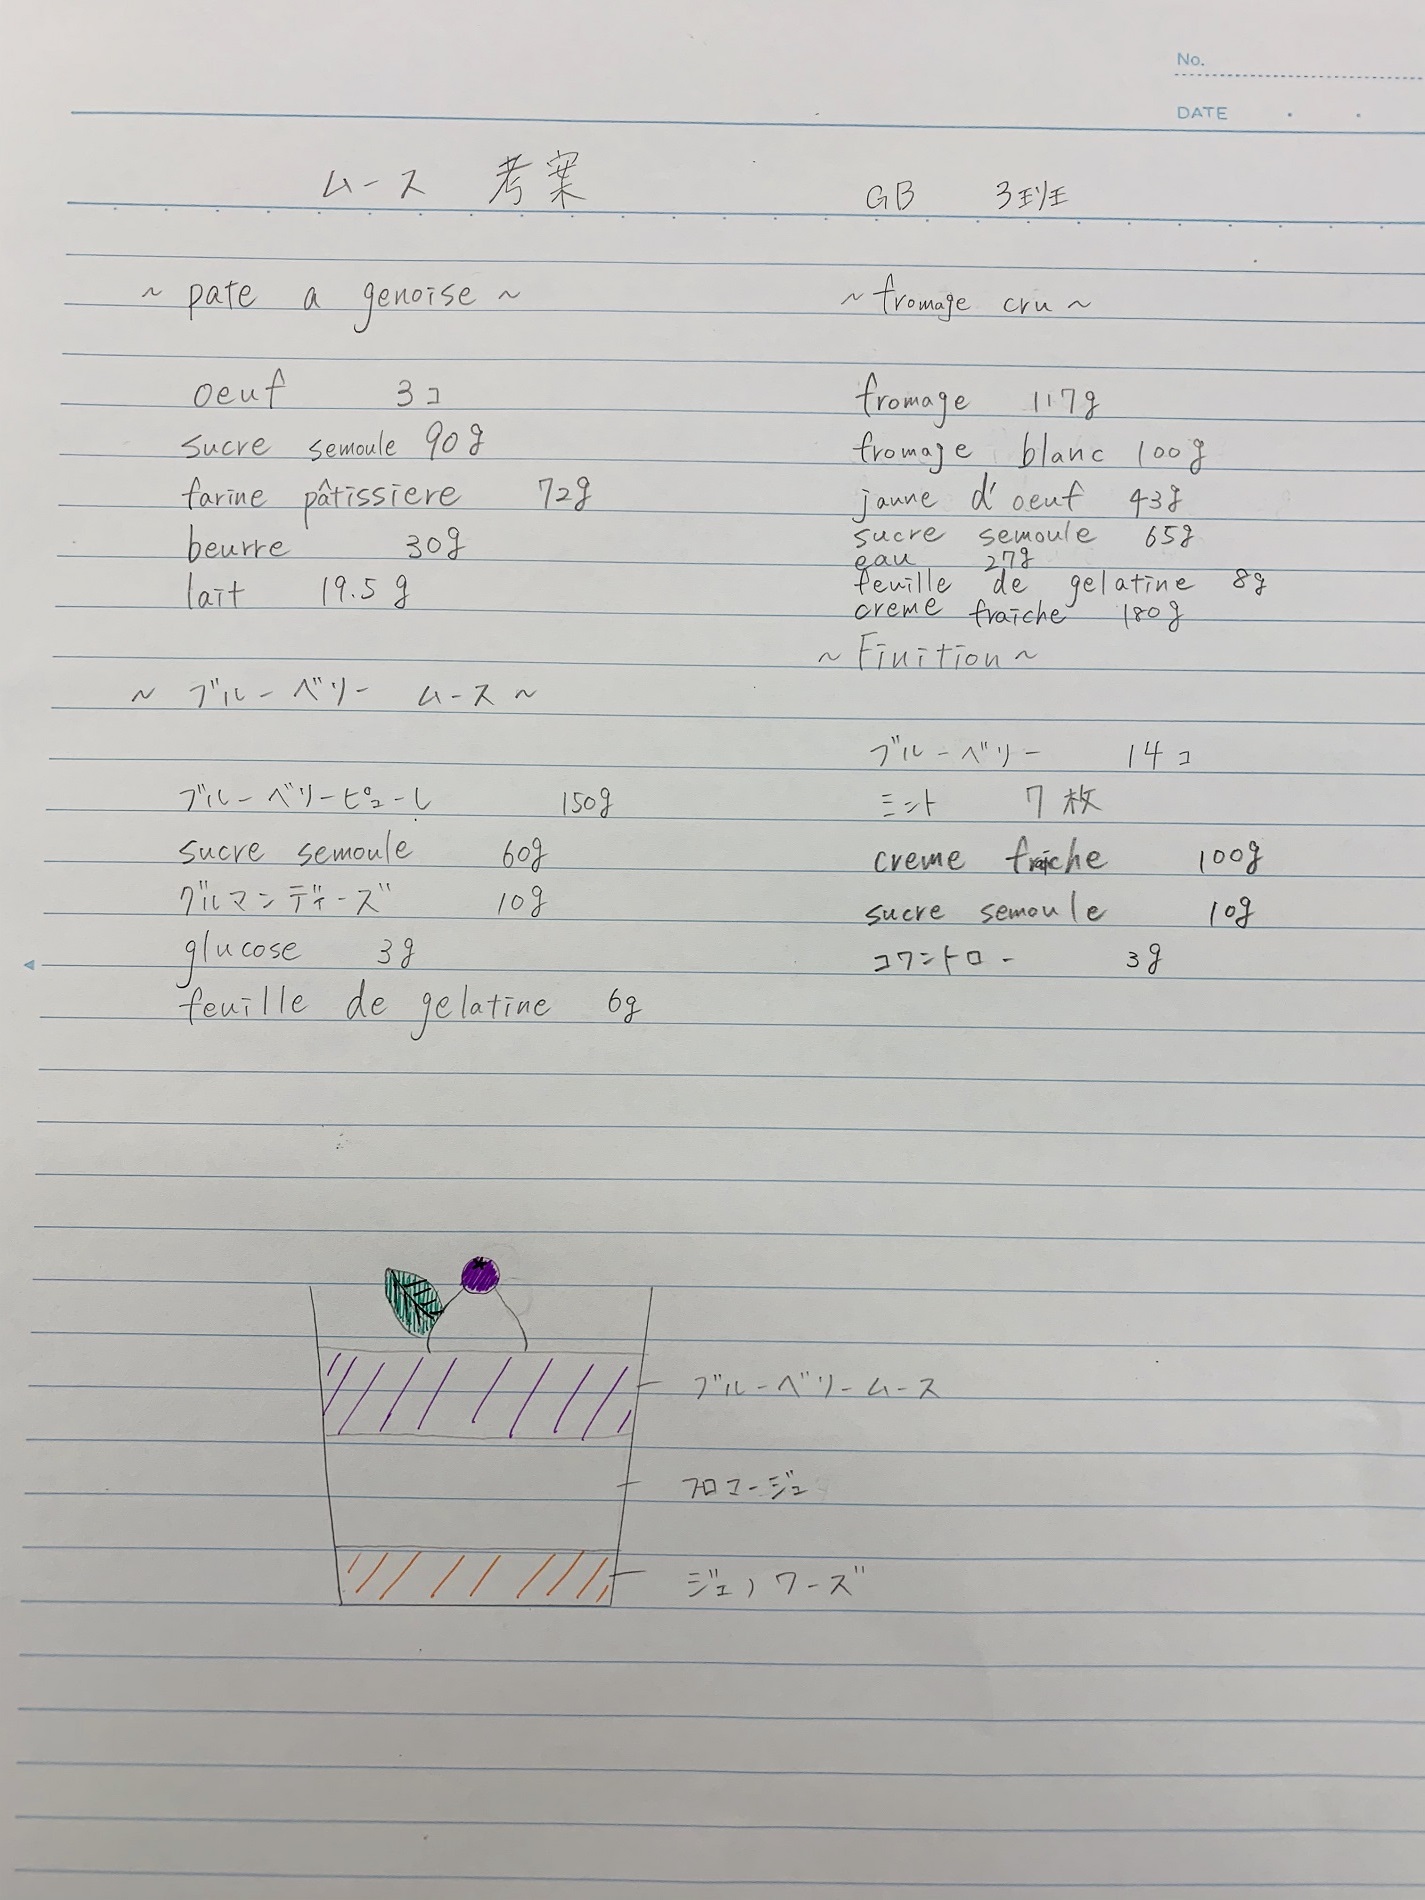 No.
DATE
ムース 考案
GB 3班
~ pate a genoise ~
oeuf 3コ
sucre semoule 90g
farine pâtissiere 72g
beurre 30g
lait 19.5g
~ ブルーベリー ムース ~
ブルーベリーピューレ 150g
sucre semoule 60g
グルマンディーズ 10g
glucose 3g
feuille de gelatine 6g
~ fromage cru ~
fromage 117g
fromage blanc 100g
jaune d'oeuf 43g
sucre semoule 65g
eau 27g
feuille de gelatine 8g
creme fraiche 180g
~ Finition ~
ブルーベリー 14コ
ミント 7枚
creme fraiche 100g
sucre semoule 10g
コワントロー 3g
ブルーベリームース
フロマージュ
ジェノワーズ